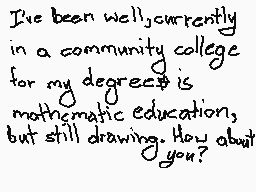 I've been well, currently
in a community college
for my degrees is
mathematic education,
but still drawing. How about
you?